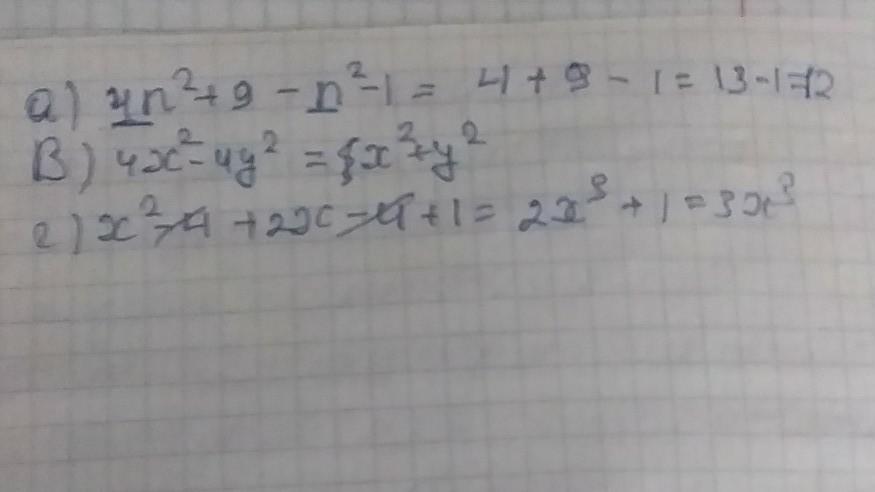 а) 4n²+9-n²-1= 4+9-1=13-1=12
В) 4x²-4y²=8x²+y²
г) x²-4+2x-4+1=2x³+1=3x³